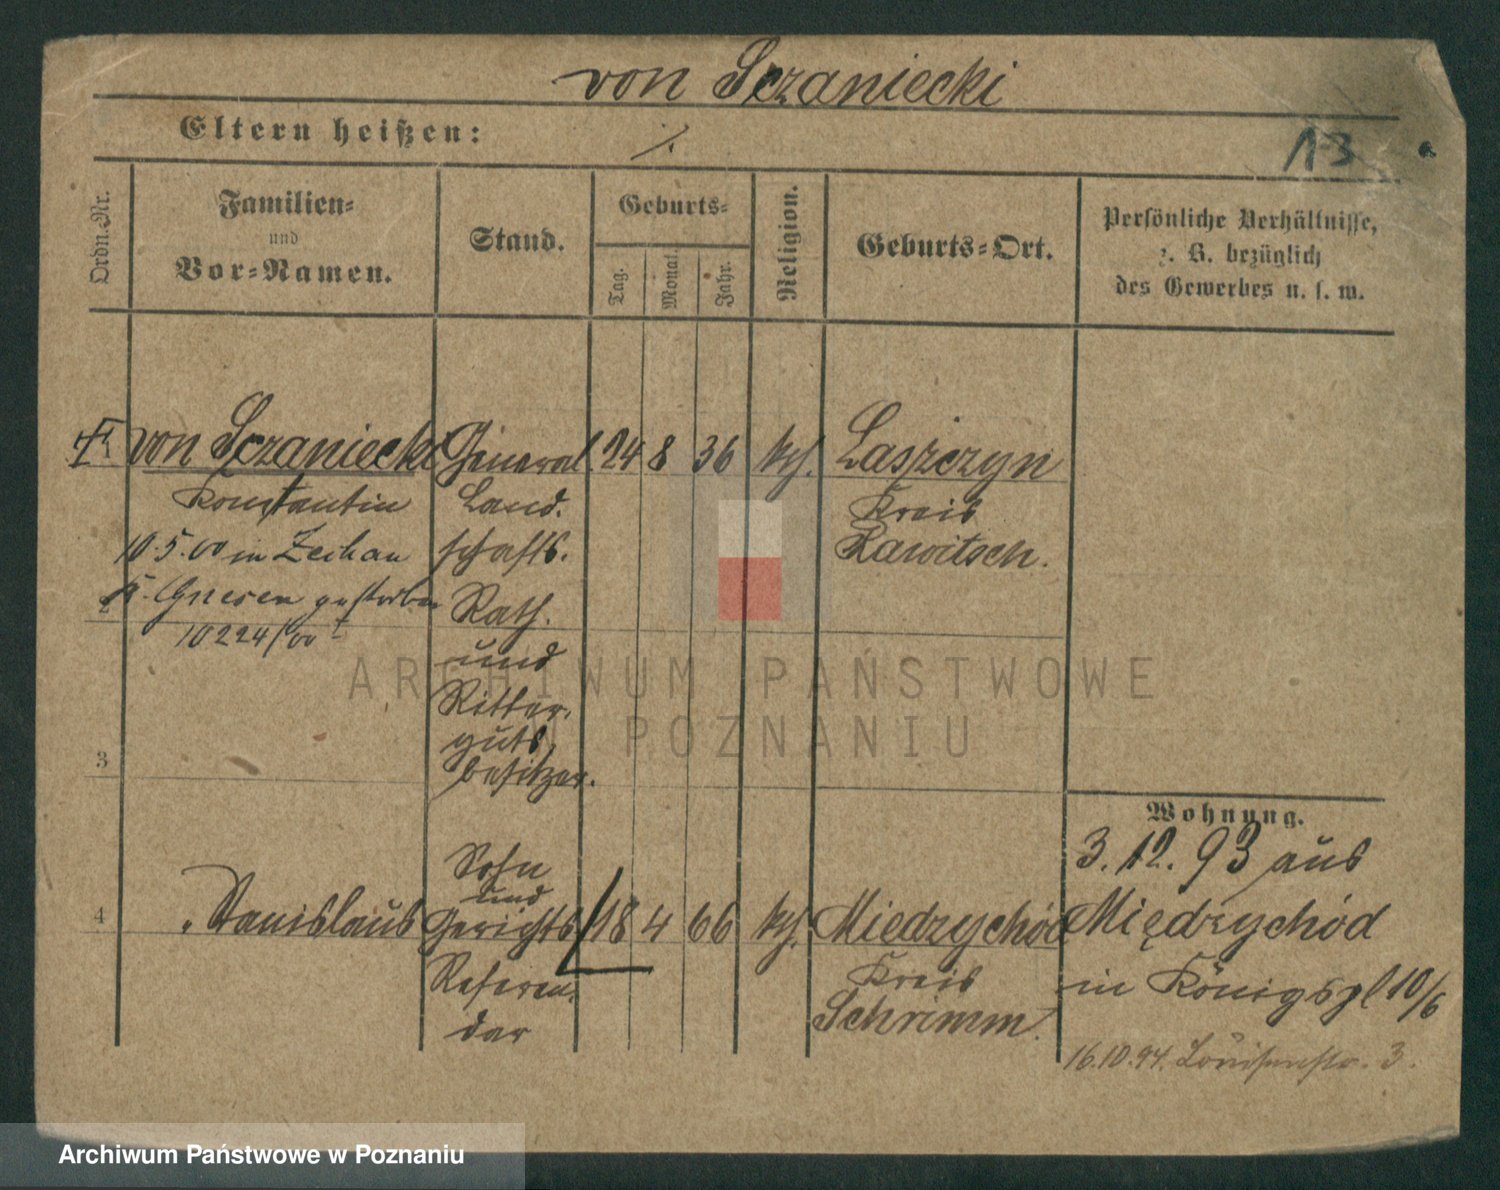 von Sczaniecki
Eltern heißen: ./.
13
Ordn.-Nr.
Familien-
und
Vor-Namen.
Stand.
Geburts-
Tag.
Monat.
Jahr.
Religion.
Geburts-Ort.
Persönliche Verhältnisse,
z. B. bezüglich
des Gewerbes u. s. w.
von Sczaniecki General 24 8 36 kth. Laszczyn
Konstantin Land- Kreis
10.5.00 in Zechau schafts- Rawitsch.
Kr. Gnesen gestorben Rath.
2
10224/00 und
Ritter-
guts-
3 besitzer.
Wohnung.
Sohn 3.12.93 aus
und
4 " Stanislaus Gerichts 18 4 66 kth. Miedzychód Międzychód
Referen- Kreis in Königspl 10/6
dar Schrimm.
16.10.94. Louisenstr. 3.
ARCHIWUM PAŃSTWOWE
W POZNANIU
Archiwum Państwowe w Poznaniu